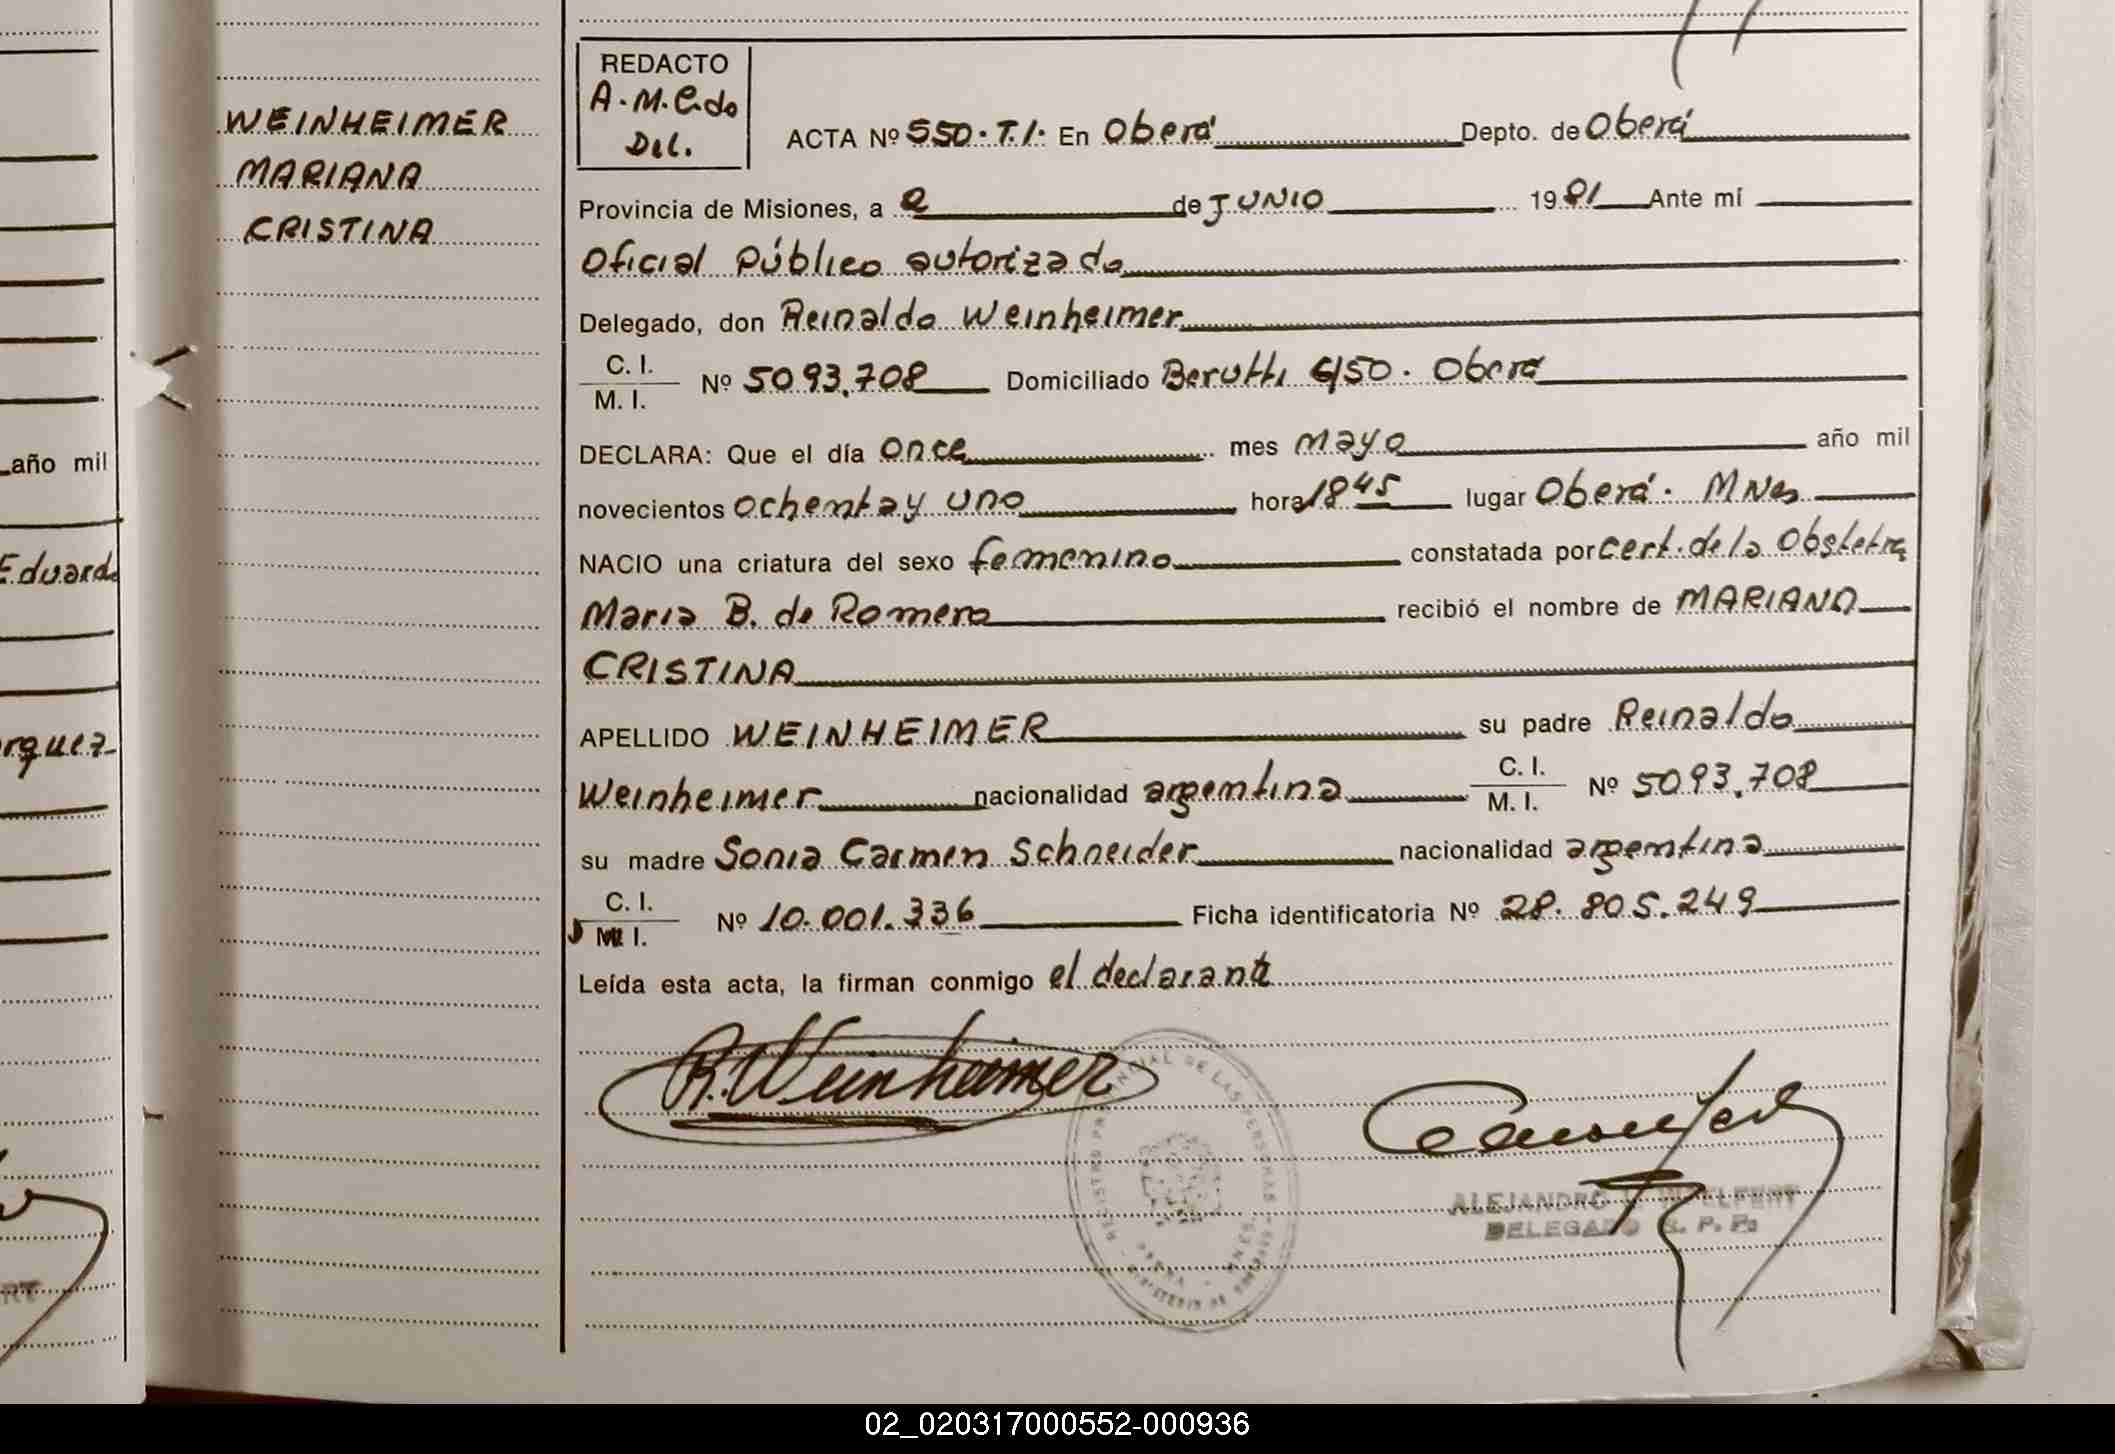 WEINHEIMER
MARIANA
CRISTINA
REDACTO
A.M.C.do
Del.
ACTA Nº 550.T.I. En Oberá Depto. de Oberá
Provincia de Misiones, a 2 de JUNIO 1981 Ante mí
Oficial Público autorizado
Delegado, don Reinaldo Weinheimer
C. I.
M. I. Nº 5093.708 Domiciliado Berutti 6/50. Oberá
DECLARA: Que el día once mes mayo año mil
novecientos ochenta y uno hora 18 45 lugar Oberá. MNes
NACIO una criatura del sexo femenino constatada por cert. de la Obstetra
Maria B. de Romero recibió el nombre de MARIANA
CRISTINA
APELLIDO WEINHEIMER su padre Reinaldo
Weinheimer nacionalidad argentina C. I.
M. I. Nº 5093.708
su madre Sonia Carmen Schneider nacionalidad argentina
C. I.
M. I. Nº 10.001.336 Ficha identificatoria Nº 28.805.249
Leída esta acta, la firman conmigo el declarante
R. Weinheimer
ALEJANDRO
DELEGADO R. P. P.
año mil
Eduardo
rquez
RT
02_020317000552-000936